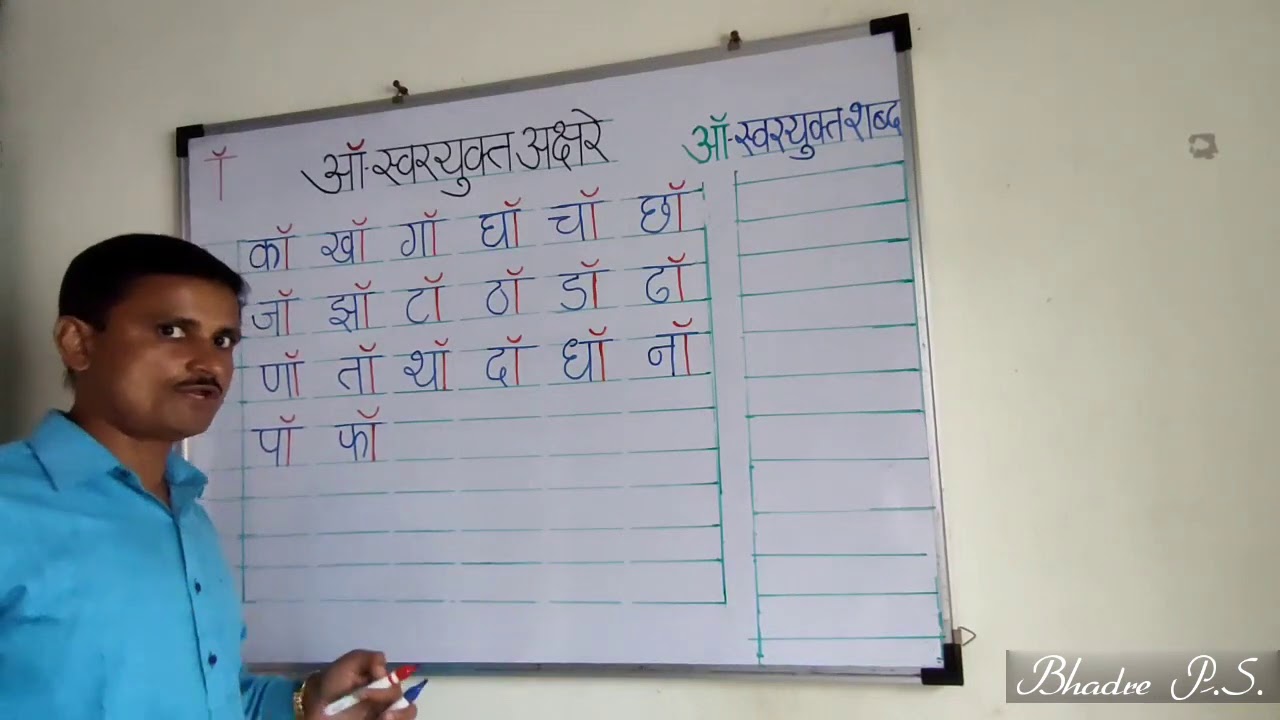 ॉ ऑ-स्वरयुक्त अक्षरे
ऑ-स्वरयुक्त शब्द
कॉ खॉ गॉ घॉ चॉ छॉ
जॉ झॉ टॉ ठॉ डॉ ढॉ
णॉ तॉ थॉ दॉ धॉ नॉ
पॉ फॉ
Bhadre P.S.